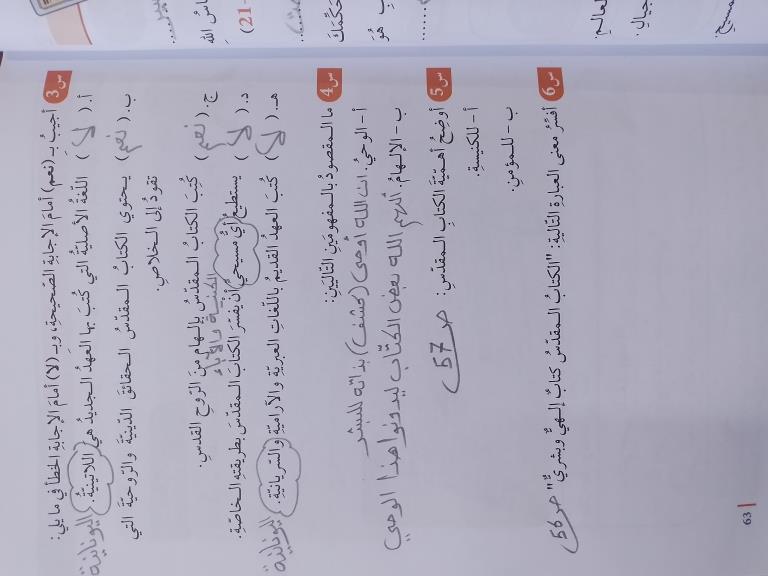 س3 أجيبُ بـِ (نعم) أمامَ الإجابةِ الصّحيحةِ، وبـِ (لا) أمامَ الإجابةِ الخطأِ في ما يلي:
أ. ( لا ) اللّغةُ الأصليّةُ التي كُتبَ بها العهدُ الجديدُ هي اللاتينيّةُ. اليونانية
ب. ( نعم ) يحتوي الكتابُ المقدّسُ الحقائقَ الدّينيّةَ والرّوحيّةَ التي
تقودُ إلى الخلاصِ.
ج. ( نعم ) كُتِبَ الكتابُ المقدّسُ بإلهامٍ منَ الرّوحِ القدسِ.
الكنيسة والآباء
د. ( لا ) يستطيعُ أيُّ مسيحيٍّ أنْ يفسّرَ الكتابَ المقدّسَ بطريقتِهِ الخاصّةِ.
هـ. ( لا ) كُتبَ العهدُ القديمُ باللّغاتِ العبريّةِ والآراميّةِ والسّريانيّةِ. اليونانية
س4 ما المقصودُ بالمفهومَينِ التّاليَينِ:
أ- الوحيُ. ان الله أوحى (كشف) بذاته للبشر
ب- الإلهامُ. ألهم الله بعض الكتّاب ليدونوا هذا الوحي
س5 أوضحُ أهمّيّةَ الكتابِ المقدّسِ: ص 57
أ- للكنيسةِ.
ب- للمؤمنِ.
س6 أفسّرُ معنى العبارةِ التّاليةِ: "الكتابُ المقدّسُ كتابٌ إلهيٌّ وبشريٌّ" ص 56
63